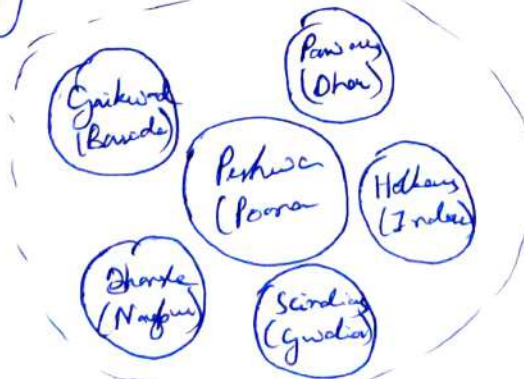 Pawars
(Dhar)
Gaikwad
(Baroda)
Peshwa
(Poona
Holkars
(Indore)
Bhonsle
(Nagpur)
Scindias
(Gwalior)